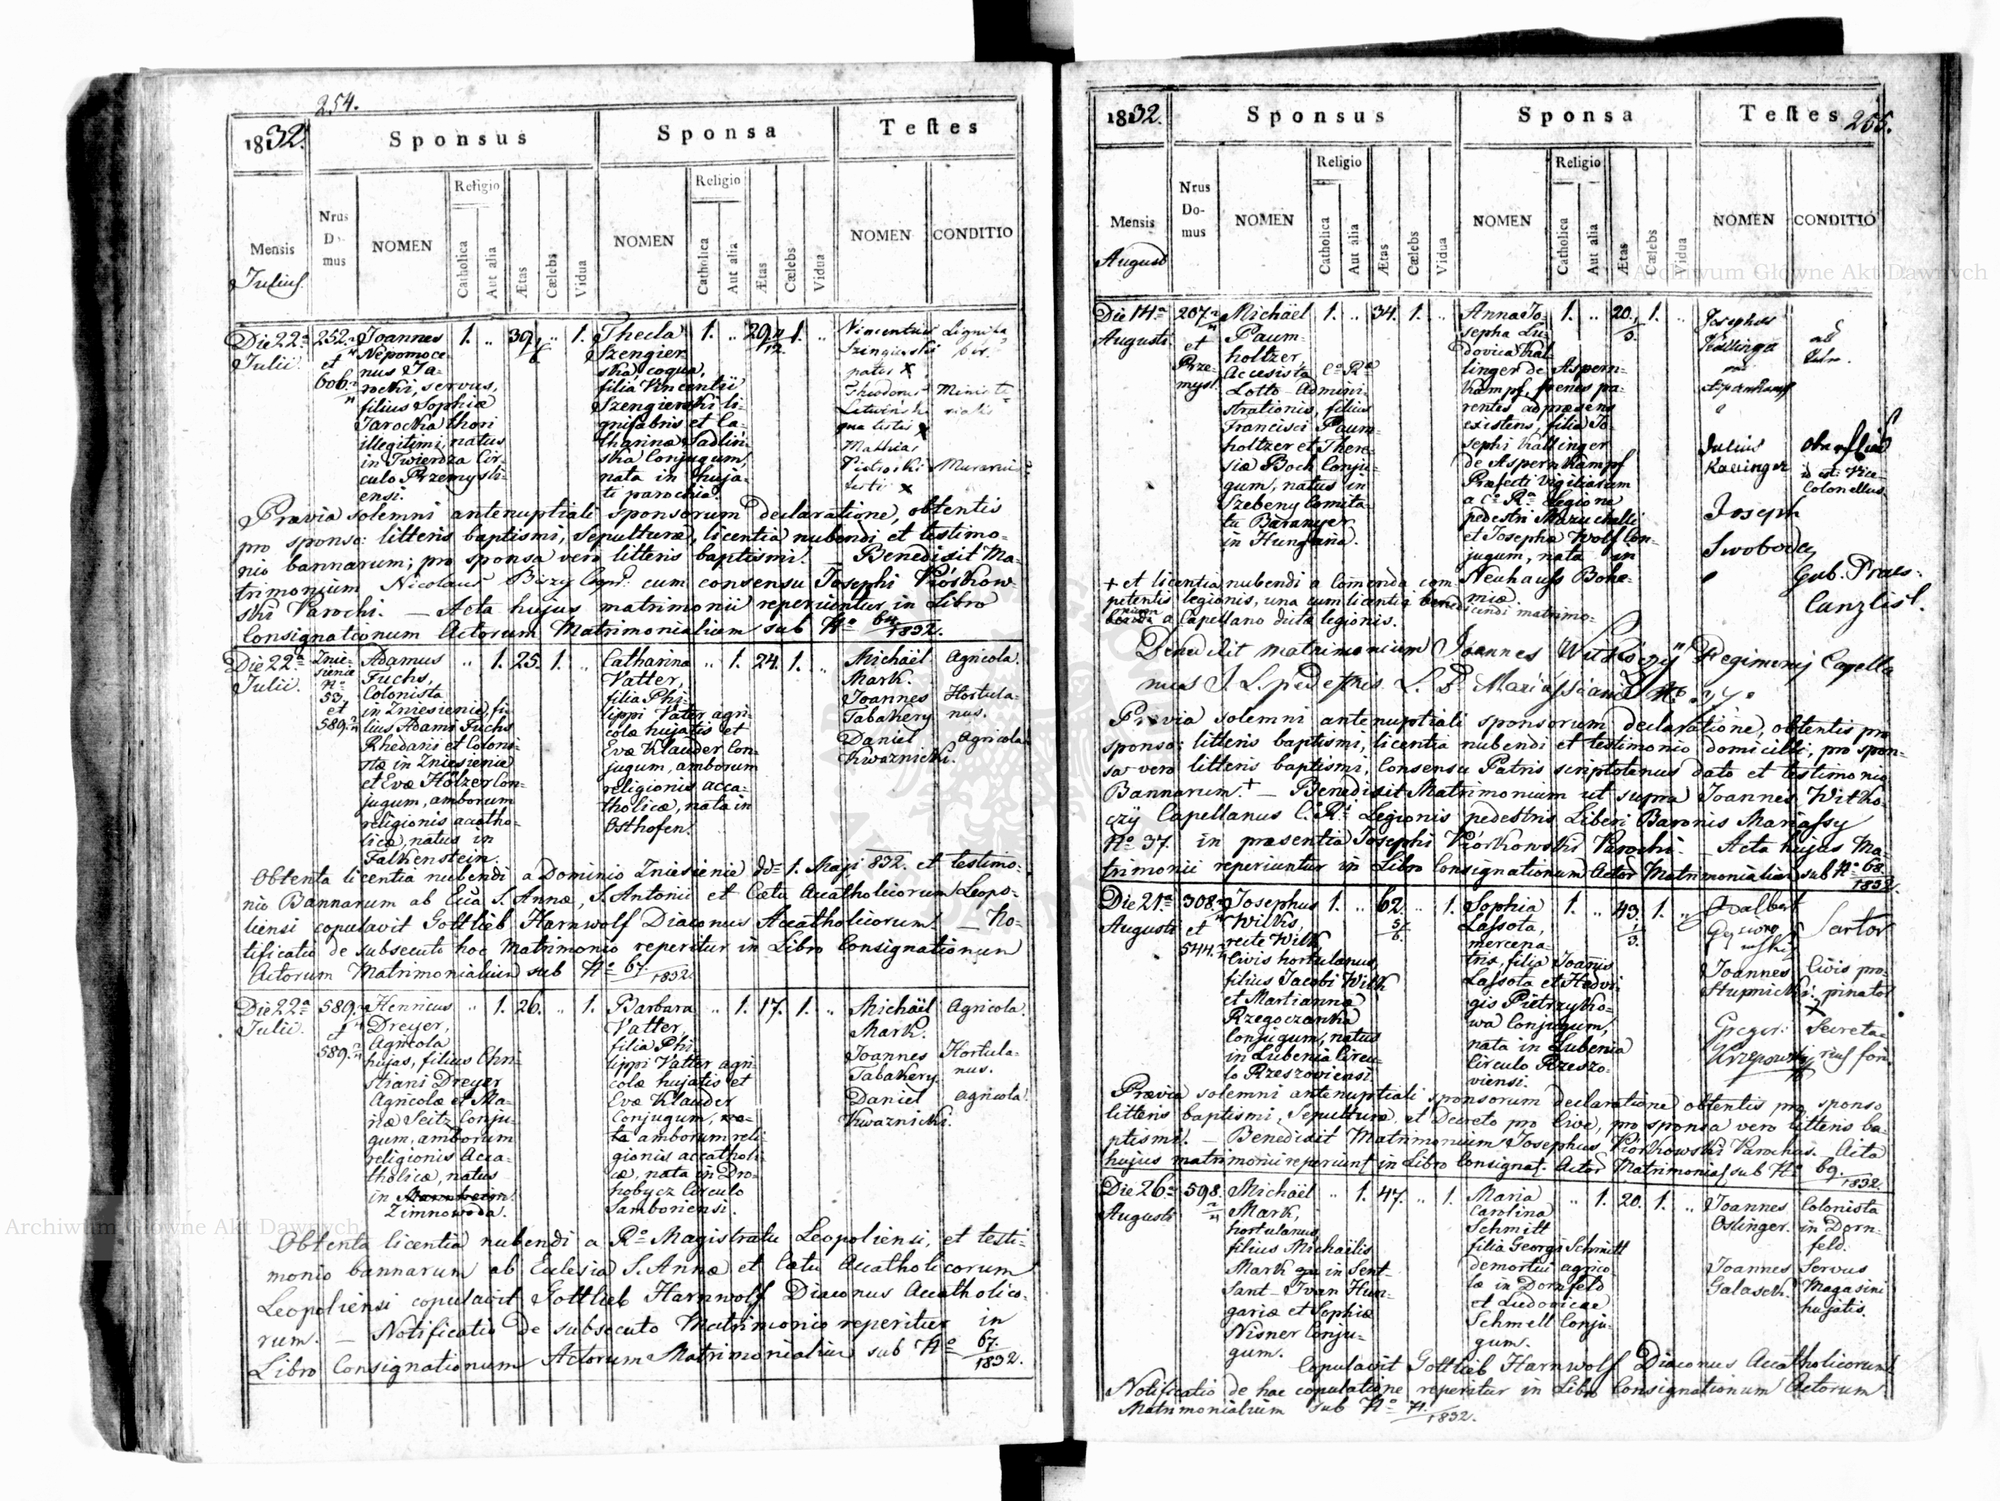 254.
1832.
Sponsus
Sponsa
Testes
Religio
Religio
Mensis
Nrus Domus
NOMEN
Catholica
Aut alia
Ætas
Cælebs
Vidua
NOMEN
Catholica
Aut alia
Ætas
Cælebs
Vidua
NOMEN
CONDITIO
Julius
Die 22a
Julii.
252.
et
606.
Joannes
Nepomoce-
nus Ja-
rocki, servus,
filius Sophiæ
Jarocka thori
illegitimi, natus
in Twierdza Cir-
culo Przemysli-
ensi.
1.
39
1.
Thecla
Szengier-
ska coqua,
filia Vincentii
Szengierski li-
gnifabris et Ca-
tharinæ Sadlin-
ska Conjugum,
nata in huja-
ti parochia.
1.
29
1.
Vincentius
pater x
Theodorus
testis x
Mathias
x
Lignifa-
ber.
Ministe-
rialis
Murarius
Prævia solemni antenuptiali sponsorum declaratione, obtentis
pro sponso: litteris baptismi, sepulturæ, licentia nubendi et testimo-
nio bannorum; pro sponsa vero litteris baptismi. Benedixit Ma-
trimonium Nicolaus cum consensu Josephi Piórkow-
ski Parochi. — Acta hujus matrimonii reperiuntur in Libro
Consignationum Actorum Matrimonialium sub No 64./1832.
Die 22a
Julii.
Znie-
sienie
No
53.
et
589.
Adamus
Fuchs,
Colonista
in Zniesienie, fi-
lius Adami Fuchs
Rhedarii et Coloni-
stæ in Zniesienie
et Evæ Hölzer Con-
jugum, amborum
religionis acatho-
licæ, natus in
Falkenstein.
1.
25.
1.
Catharina
Vatter,
filia Phi-
lippi Vatter agri-
colæ hujatis et
Evæ Klauder Con-
jugum, amborum
religionis acca-
tholicæ, nata in
Osthofen.
1.
24.
1.
Michaël
Mark.
Joannes
Tabakery
Daniel
Kwaznicki.
Agricola.
Hortula-
nus.
Agricola
Obtenta licentia nubendi a Dominio Zniesienie dd 1. Maji 832. et testimo-
nio Bannorum ab S. Annæ, S. Antonii et Cœtu Accatholicorum Leopo-
liensi copulavit Gottlieb Harnwolf Diaconus Accatholicorum. — No-
tificatio de subsecuto hoc Matrimonio reperitur in Libro Consignationum
Actorum Matrimonialium sub No 67./1832.
Die 22a
Julii.
589.
et
589.
Henricus
Dreyer,
Agricola
hujas, filius Chri-
stiani Dreyer
Agricolæ et Ma-
riæ Seitz Conju-
gum, amborum
religionis Acca-
tholicæ, natus
in Mannheim.
Zimnowoda.
1.
26.
1.
Barbara
Vatter,
filia Phi-
lippi Vatter agri-
colæ hujatis et
Evæ Klauder
Conjugum, na-
ta amborum reli-
gionis accatholi-
cæ, nata in Dro-
hobycz Circulo
Samboriensi.
1.
17.
1.
Michaël
Mark.
Joannes
Tabakery.
Daniel
Kwaznicki.
Agricola.
Hortula-
nus.
Agricola.
Obtenta licentia nubendi a Ro Magistratu Leopoliensi, et testi-
monio bannorum ab Eclesia S. Annæ et Cœtu Accatholicorum
Leopoliensi copulavit Gottlieb Harnwolf Diaconus Accatholico-
rum. — Notificatio de subsecuto Matrimonio reperitur in
Libro Consignationum Actorum Matrimonialium sub No 67./1832.
1832.
Sponsus
Sponsa
Testes
255.
Religio
Religio
Mensis
Nrus Domus
NOMEN
Catholica
Aut alia
Ætas
Cælebs
Vidua
NOMEN
Catholica
Aut alia
Ætas
Cælebs
Vidua
NOMEN
CONDITIO
August
Die 14a
Augusti
207.
et
Prze-
mysl.
Michaël
Paum-
holtzer,
Accesista C. R.
Lotto Admini-
strationis, filius
Francisci Paum-
holtzer et There-
siæ Boch Conju-
gum, natus in
Szebeny Comita-
tu Baranyer
in Hungaria.
1.
34.
1.
Anna Jo-
sepha Lu-
dovica Kal-
linger de Aspern-
kampf, penes pa-
rentes ad præsens
existens, filia Jo-
sephi Kallinger
de Aspernkampf
Præfecti Vigiliarum
a C. R. Legione
pedestri Mazuchelli
et Josephæ Wolf Con-
jugum, nata in
Neuhauss Bohe-
miæ.
1.
20.
1.
Josephus
Kallinger
Julius
Kallinger
Joseph
Swoboda
id est Vice-
Colonellus
Gub. Praes.
Canzlist.
+ et licentia nubendi a Comenda com-
petentis legionis, una cum licentia benedicendi matrimo-
nium a Capellano dictæ legionis.
Benedixit matrimonium Joannes Witkoczy Regiminis Capella-
nus
Prævia solemni antenuptiali sponsorum declaratione, obtentis pro
sponso: litteris baptismi, licentia nubendi et testimonio domicilii, pro spon-
sa vero litteris baptismi, Consensu Patris scriptotenus dato et testimonio
Bannorum.+ — Benedixit Matrimonium ut supra Joannes Witko-
czy Capellanus C. R. Legionis pedestris Liberi Baronis Mariassy
No 37. in præsentia Josephi Piórkowski Parochi. — Acta hujus Ma-
trimonii reperiuntur in Libro Consignationum Actor Matrimonialium sub No 68./1832.
Die 21a
Augusti
308.
et
544.
Josephus
Wilks,
recte Wilk,
Civis hortulanus,
filius Jacobi Wilk
et Martianna
Rzegoczanka
Conjugum, natus
in Lubenia Circu-
lo Rzeszoviensi.
1.
62.
1.
Sophia
Lassota,
mercena-
ria, filia Joannis
Lassota et Hedvi-
gis Pietrzyko-
wa Conjugum,
nata in Lubenia
Circulo Rzeszo-
viensi.
1.
43.
1.
Adalbert
Joannes
Stupnicki
Gregor:
Sartor
Civis pro-
pinator
x
Secreta-
rius for.
Prævia solemni antenuptiali sponsorum declaratione obtentis pro sponso
litteris baptismi, Sepulturæ, et Decreto pro Cive, pro sponsa vero litteris ba-
ptismi. — Benedixit Matrimonium Josephus Piórkowski Parochus. Acta
hujus matrimonii reperiunt in Libro Consignat. Actor Matrimonial sub No 69./1832.
Die 26a
Augusti
598.
Michaël
Mark,
hortulanus,
filius Michaëlis
Mark in Sent-
Sant-Ivan Hun-
gariæ et Sophiæ
Nisner Conju-
gum.
1.
47.
1.
Maria
Carolina
Schmitt
filia Georgi Schmitt
demortui agrico-
læ in Dornfeld
et Ludovicæ
Schmell Conju-
gum.
1.
20.
1.
Joannes
Oslinger.
Joannes
Galasch.
Colonista
in Dorn-
feld.
Servus
Magasini
hujatis.
Copulavit Gottlieb Harnwolf Diaconus Accatholicorum
Notificatio de hac copulatione reperitur in Libro Consignationum Actorum
Matrimonialium sub No 71./1832.
Archiwum Główne Akt Dawnych
Archiwum Główne Akt Dawnych